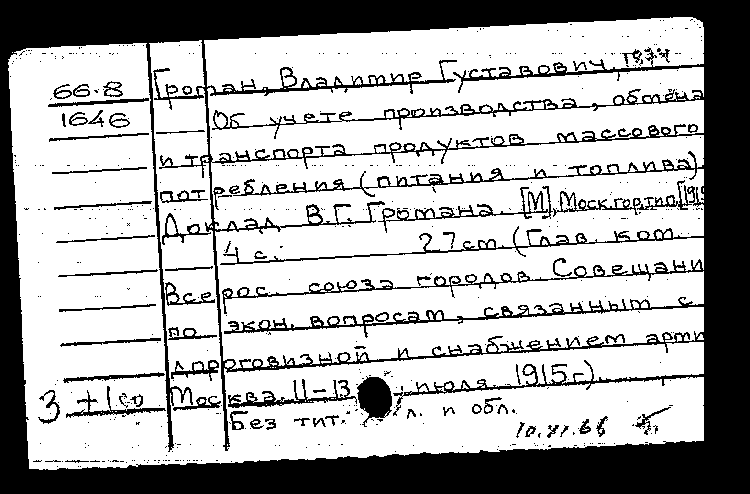 66-8 Громан, Владимир Густавович, 1874
1646 Об учете производства, обмена
и транспорта продуктов массового
потребления (питания и топлива).
Доклад В.Г. Громана. [М], Моск.гор.тип, [1915
4 с. 27см. (Глав. ком.
Всерос. союза городов. Совещани
по экон. вопросам, связанным с
дороговизной и снабжением арми
3 +1 Москва, 11-13 июля 1915г.).
Без тит. л. и обл.
10.XI.66